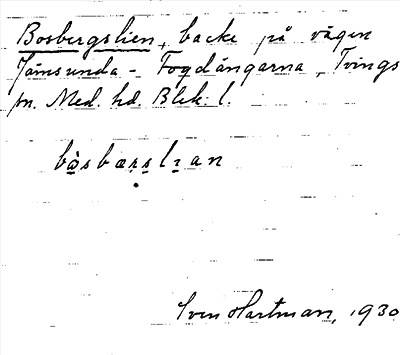 Bosbergslien, backe på vägen
Jämsunda - Fogdängarna, Tvings
sn. Med. hd. Blek. l.
bo̠sbærs̠lɪ̠an
Sven Hartman, 1930